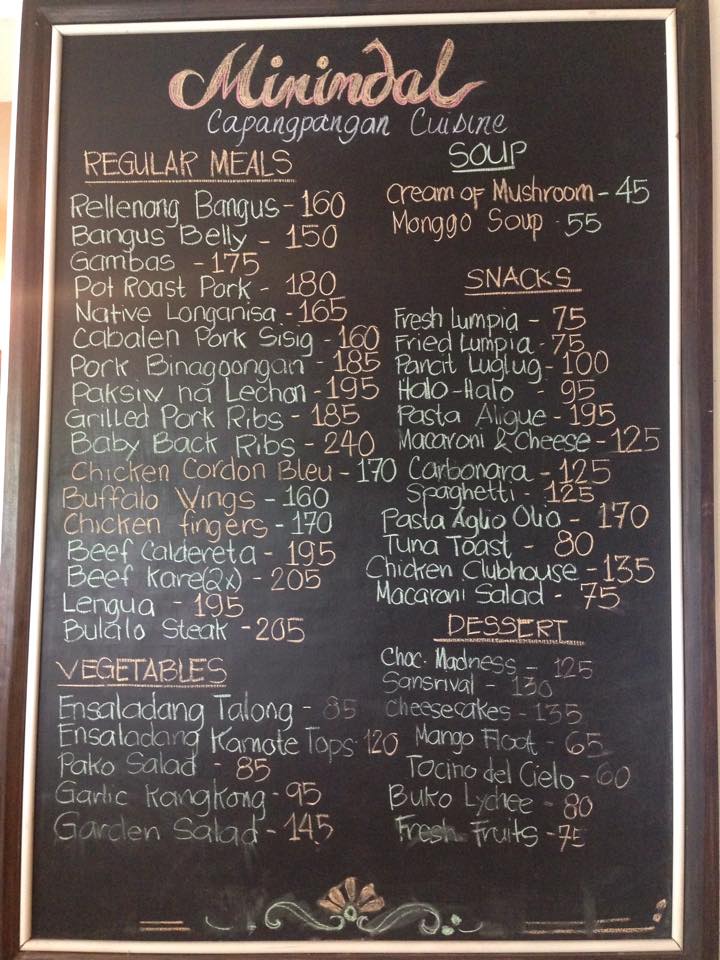 Minindal
Capangpangan Cuisine
REGULAR MEALS
Rellenong Bangus - 160
Bangus Belly - 150
Gambas - 175
Pot Roast Pork - 180
Native Longanisa - 165
Cabalen Pork Sisig - 160
Pork Binagoongan - 185
Paksiw na Lechon - 195
Grilled Pork Ribs - 185
Baby Back Ribs - 240
Chicken Cordon Bleu - 170
Buffalo Wings - 160
Chicken fingers - 170
Beef Caldereta - 195
Beef Kare(2x) - 205
Lengua - 195
Bulalo Steak - 205
VEGETABLES
Ensaladang Talong - 85
Ensaladang Kamote Tops 120
Pako Salad - 85
Garlic Kangkong - 95
Garden Salad - 145
SOUP
Cream of Mushroom - 45
Monggo Soup - 55
SNACKS
Fresh Lumpia - 75
Fried Lumpia - 75
Pancit Luglug - 100
Halo-Halo - 95
Pasta Aligue - 195
Macaroni & Cheese - 125
Carbonara - 125
Spaghetti - 125
Pasta Aglio Olio - 170
Tuna Toast - 80
Chicken Clubhouse - 135
Macaroni Salad - 75
DESSERT
Choc. Madness - 125
Sansrival - 130
Cheesecakes - 135
Mango Float - 65
Tocino del Cielo - 60
Buko Lychee - 80
Fresh Fruits - 75